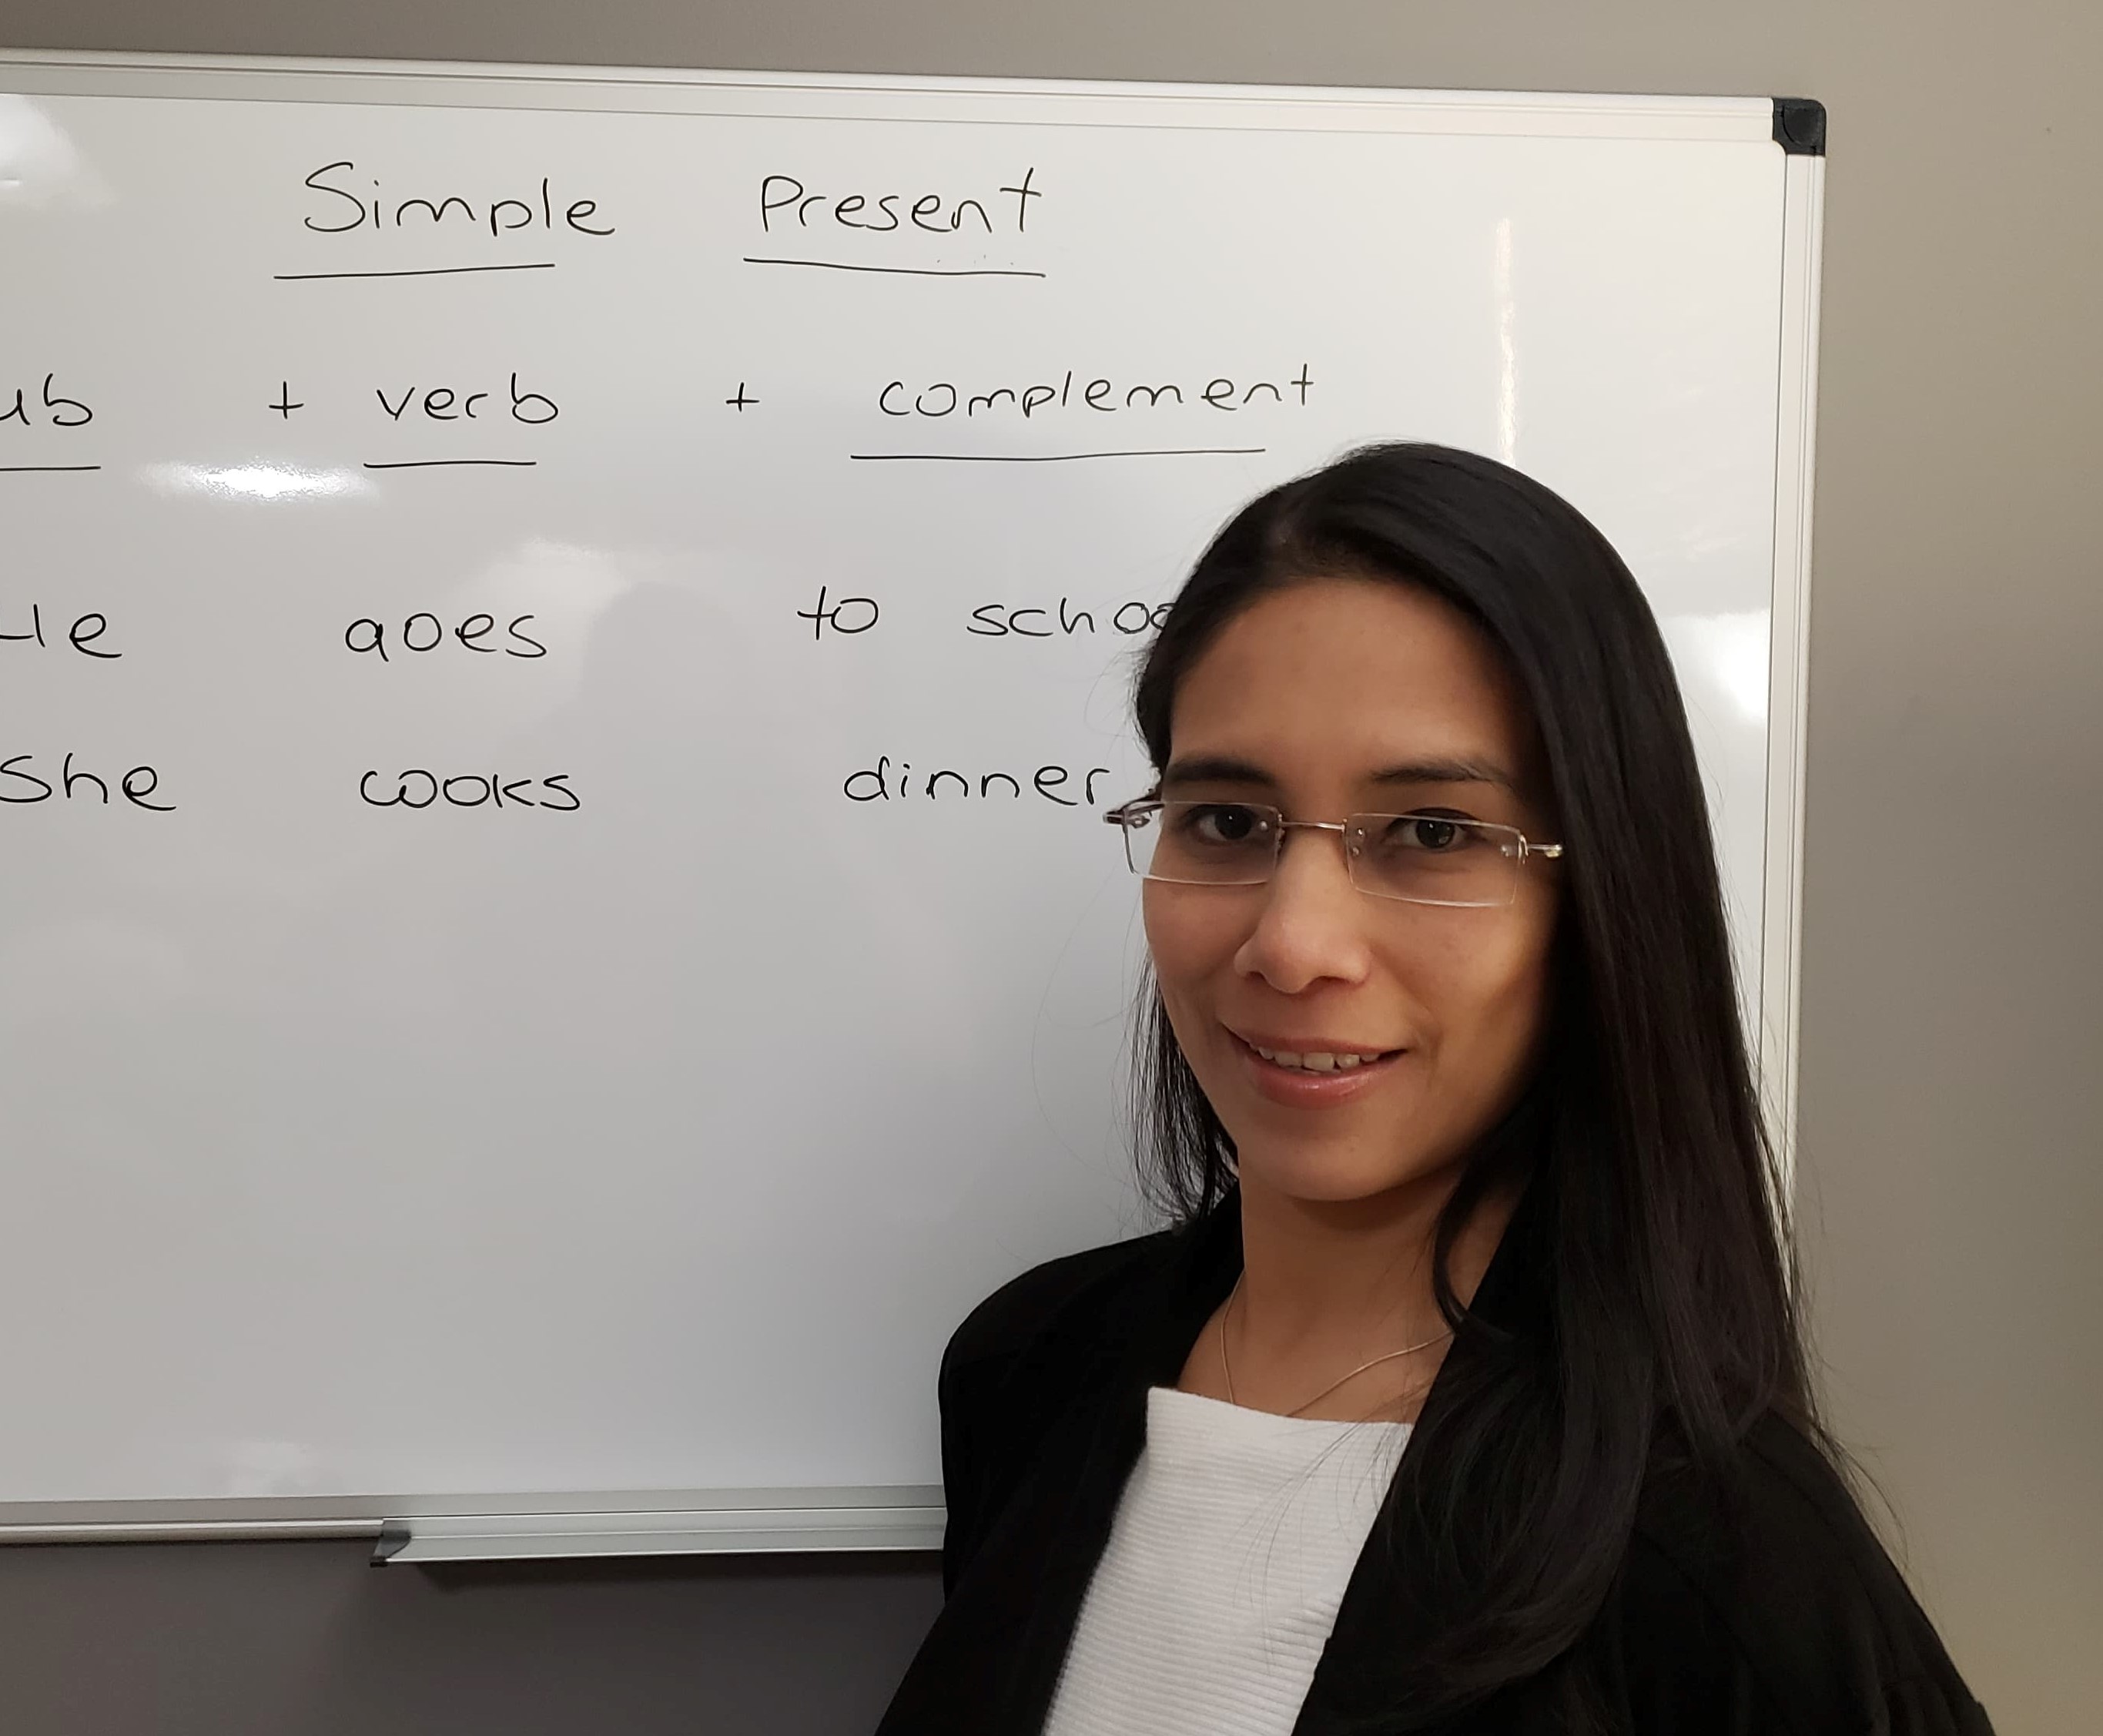 Simple Present
ub + verb + complement
He goes to schoo
She cooks dinner